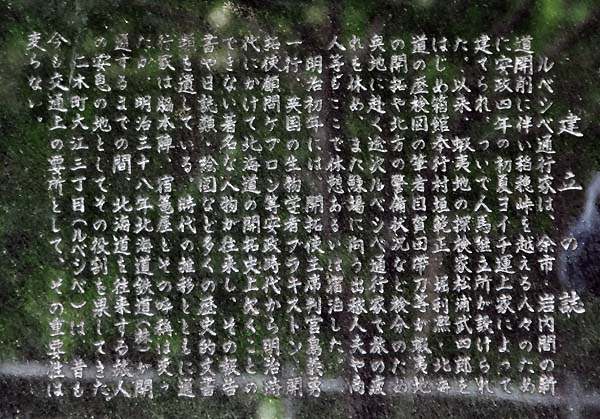 建立の誌
ルベシベ通行家は、余市 岩内間の新
道開削に伴い稲穂峠を越える人々のため
に安政四年の初夏ヨイチ運上家によって
建てられ、ついで人馬継立所が設けられ
た。以来、蝦夷地の探検家松浦武四郎を
はじめ箱館奉行村垣範正、堀利煕、北海
道の歴検図の筆者目賀田帯刀等が蝦夷地
の開拓や北方の警備状況など検分のため
奥地に赴く途次ルベシベ通行家で旅の疲
れを休め、また鰊場に向う出稼人夫や商
人等がここで休憩あるいは宿泊した。
明治初年には、開拓使主席判官島義勇
一行、英国の生物学者ブラキストン、開
拓使顧問ケプロン等安政時代から明治時
代にかけて北海道の開拓史上欠くことの
できない著名な人物が往来し、その報告
書や日誌類、絵図など多くの歴史的文書
類を遺している。時代の推移とともに通
行家は脇本陣、宿屋とその呼称は変っ
たが、明治三十八年北海道鉄道(株)が開
通するまでの間、北海道を往来する旅人
の安息の地としてその役割を果してきた。
仁木町大江三丁目(ルベシベ)は、昔も
今も交通上の要所として、その重要性は
変らない。